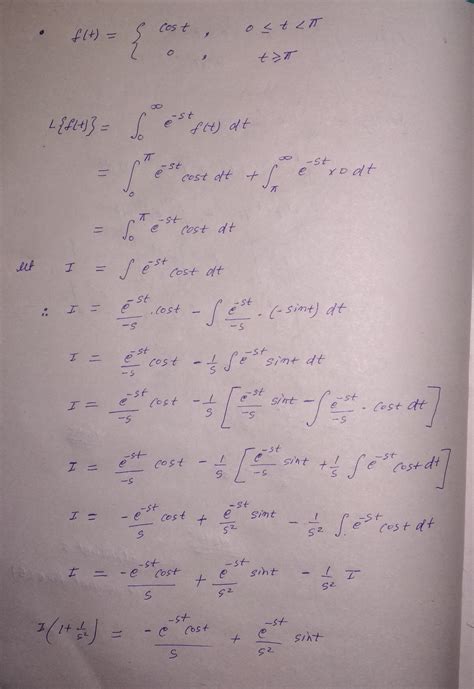 • f(t) = { cos t , 0 ≤ t < π
0 , t ≥ π
L{f(t)} = ∫₀^∞ e^{-st} f(t) dt
= ∫₀^π e^{-st} cos t dt + ∫_π^∞ e^{-st} x 0 dt
= ∫₀^π e^{-st} cos t dt
let I = ∫ e^{-st} cos t dt
∴ I = e^{-st}/-s . cos t - ∫ e^{-st}/-s . (-sin t) dt
I = e^{-st}/-s cos t - 1/s ∫ e^{-st} sin t dt
I = e^{-st}/-s cos t - 1/s [ e^{-st}/-s sin t - ∫ e^{-st}/-s . cos t dt ]
I = e^{-st}/-s cos t - 1/s [ e^{-st}/-s sin t + 1/s ∫ e^{-st} cos t dt ]
I = -e^{-st}/s cos t + e^{-st}/s² sin t - 1/s² ∫ e^{-st} cos t dt
I = -e^{-st} cos t/s + e^{-st}/s² sin t - 1/s² I
I(1 + 1/s²) = -e^{-st} cos t/s + e^{-st}/s² sin t